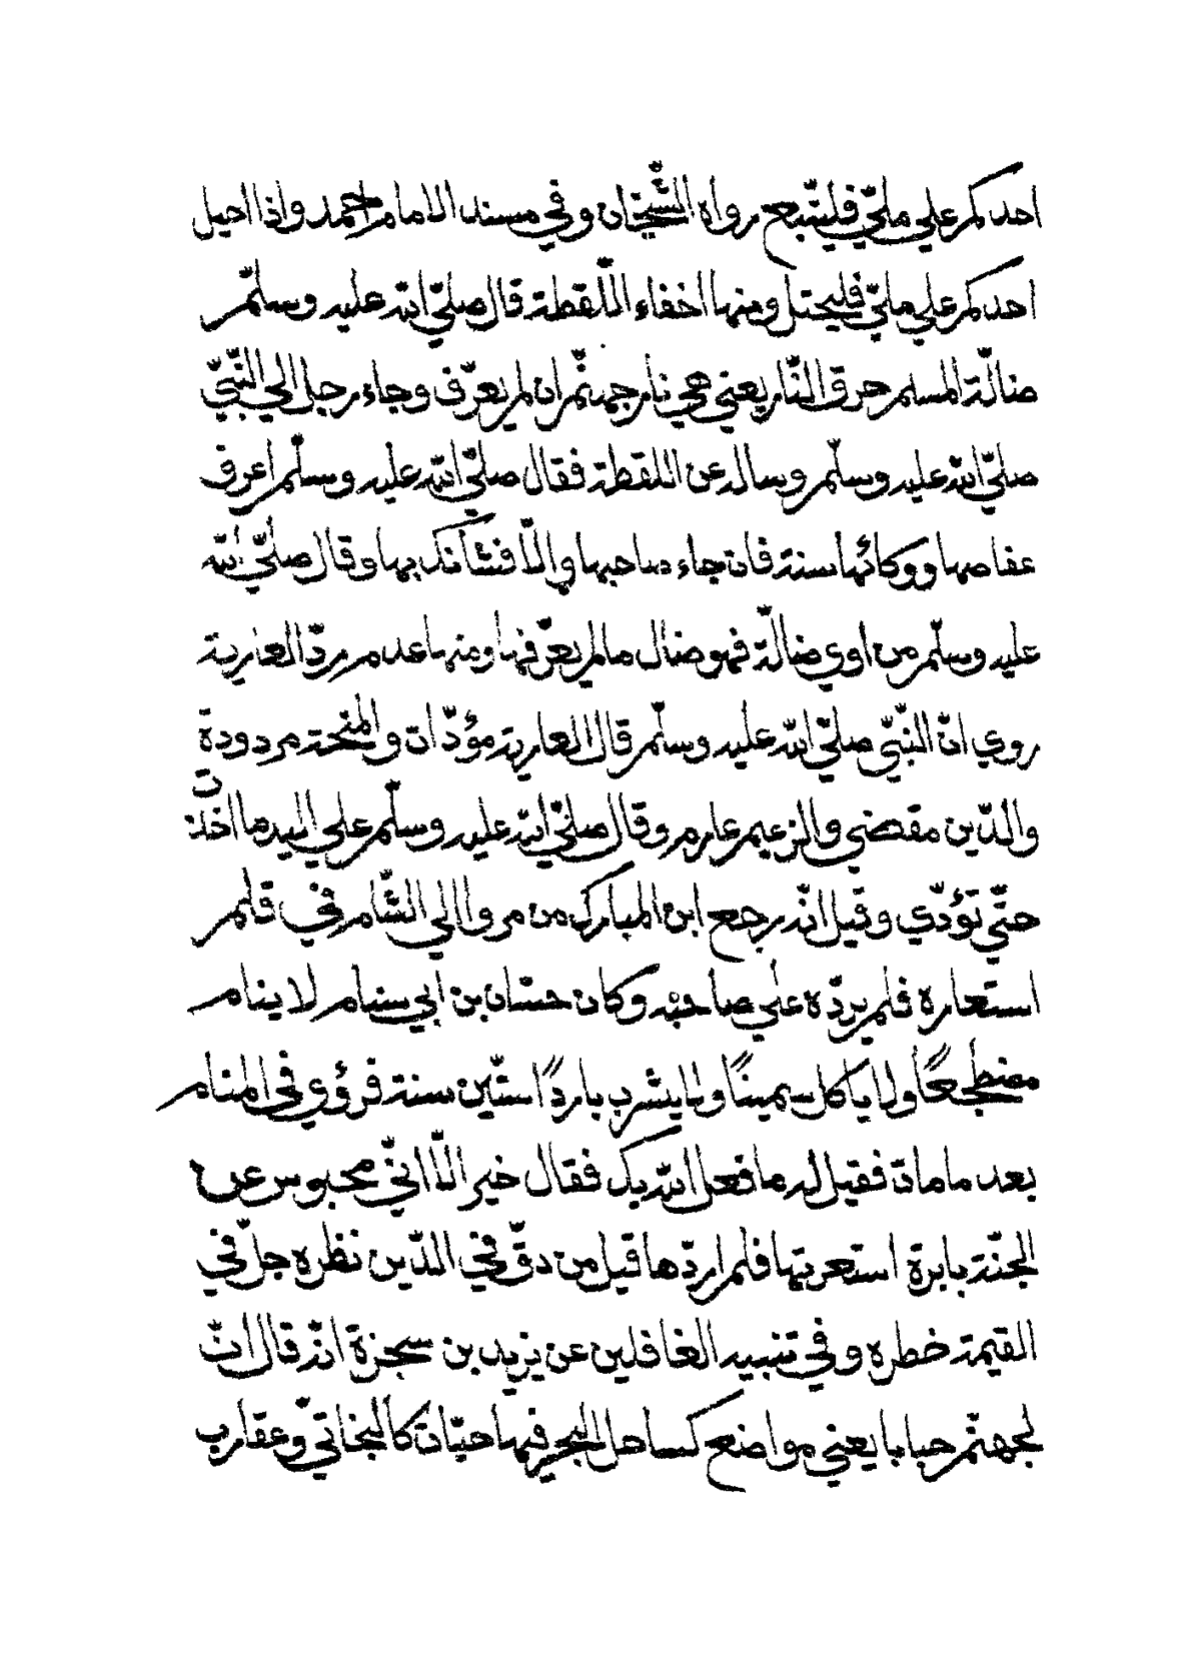 احدكم علي مليّ فليتّبع رواه الشّيخان وفي مسند الامام احمد واذا احيل
احدكم علي مليّ فليحتل ومنها اخفاء اللّقطة قال صليّ اللّه عليه وسلّم
ضالّة المسلم حرق النّار يعني هي نار جهنّم ان لم يعرّف وجاء رجل الي النّبيّ
صليّ اللّه عليه وسلّم وساله عن اللقطة فقال صليّ اللّه عليه وسلّم اعرف
عفاصها ووكائها سنة فان جاء صاحبها والّا فشأنك بها وقال صليّ اللّه
عليه وسلّم من اوي ضالّة فهو ضال ما لم يعرّفها ومنها عدم ردّ العارية
روي انّ النّبيّ صليّ اللّه عليه وسلّم قال العارية مؤدّات والمنحة مردودة
والدّين مقضي والزعيم غارم وقال صليّ اللّه عليه وسلّم علي اليد ما اخذت
حتّي تؤدّي وقيل انّه رجع ابن المبارك من مروا الي الشّام في قلم
استعاره فلم يردّه علي صاحبه وكان حسّان بن ابي سنام لا ينام
مضطجعًا ولا ياكل سمينًا ولا يشرب باردًا ستّين سنة فرؤي في المنام
بعد ما مات فقيل له ما فعل اللّه بك فقال خير الّا انّي محبوس عن
الجنّة بابرة استعريتها فلم اردّها قيل من دقّ في الدّين نظره جلّ في
القيمة خطره وفي تنبيه الغافلين عن يزيد بن سجرة انّه قال انّ
لجهنّم جبابا يعني مواضع كساحل البحر فيها حيّات كالبخاتيّ وعقارب